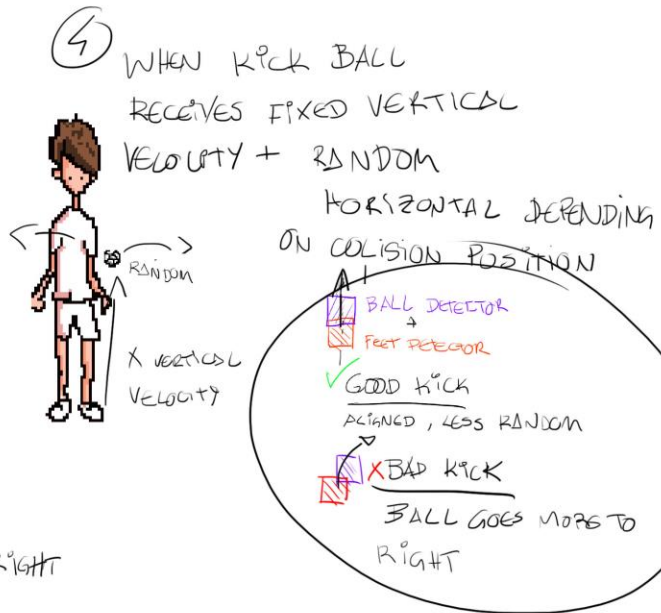 4
WHEN KICK BALL
RECEIVES FIXED VERTICAL
VELOCITY + RANDOM
HORIZONTAL DEPENDING
ON COLISION POSITION
RANDOM
X VERTICAL
VELOCITY
BALL DETECTOR
+
FEET DETECTOR
GOOD KICK
ALIGNED, LESS RANDOM
X BAD KICK
BALL GOES MORE TO
RIGHT
RIGHT